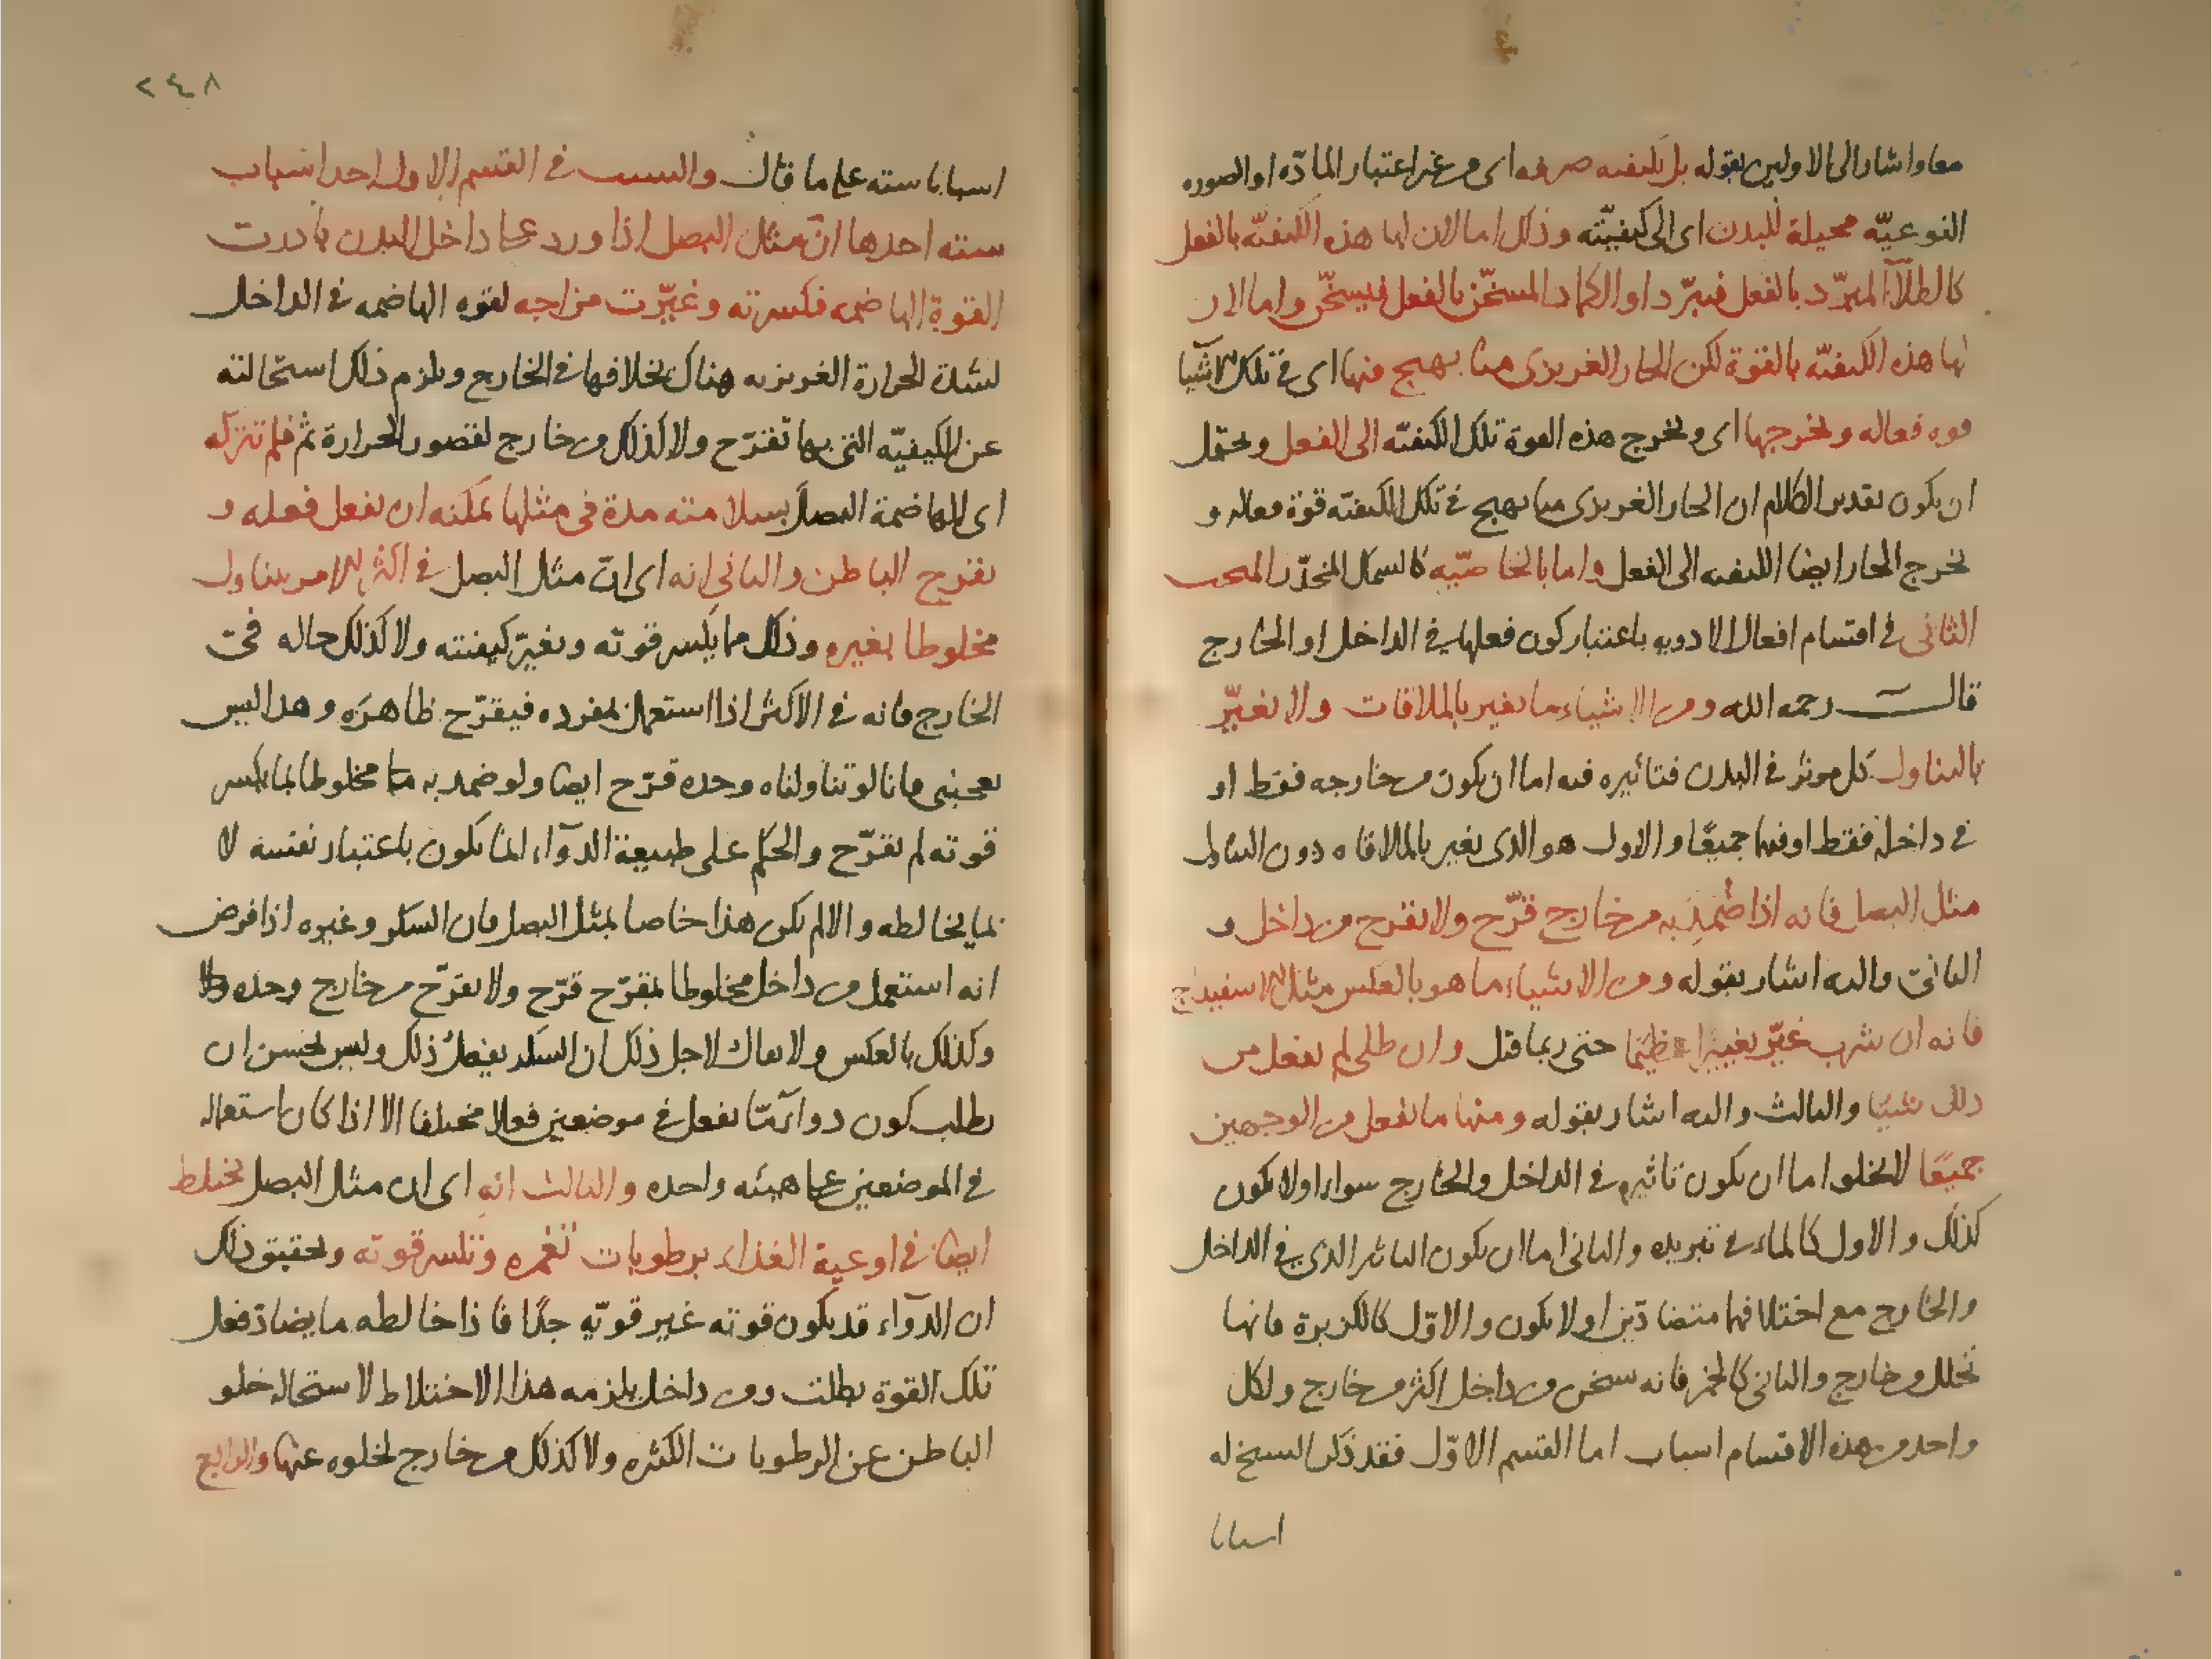 معا واشار الى الاولين بقوله بل بكيفيه صرفه اى من غير اعتبار المادّه او الصوره
النوعيّه محيلة للبدن اى الى كيفيّته وذلك اما لان لها هذه الكيفيّه بالفعل
كالطلآء المبرّد بالفعل فيبرّد او الكماد المسخّن بالفعل فيسخّن واما لان
لها هذه الكيفيّه بالقوة لكن الحار الغريزى منا يهيج فيها اى فى تلك الاشيا
قوه فعاله ويخرجها اى ويخرج هذه القوة تلك الكيفيّه الى الفعل ويحتمل
ان يكون تقدير الكلام ان الحار الغريزى منا يهيج فى تلك الكيفيّه قوّة فعاله و
يخرج الحار ايضا الكيفيه الى الفعل واما بالخاصّيّه كالسمك المخدّر المعجب
الثانى فى اقتسام افعال الادويه باعتبار كون فعلها فى الداخل او الخارج
قال رحمه الله ومن الاشياء ما يغير بالملاقات ولا يغيّر
بالتناول كل موثر فى البدن فتاثيره فيه اما ان يكون من خارجه فقط او
فى داخله فقط او فيهما جميعًا والاول هو الذى يغير بالملاقاه دون التناول
مثل البصل فانه اذا ضُمِد به من خارج قرّح ولا يقرح من داخل و
الثانى واليه اشار بقوله ومن الاشياء ما هو بالعكس مثل الاسفيداج
فانه ان شرب غيّر تغييرا عظيمًا حتى ربما قتل وان طلى لم يفعل من
ذلك شيئا والثالث واليه اشار بقوله ومنها ما يفعل من الوجهين
جميعًا لا يخلوا ما ان يكون تاثيره فى الداخل والخارج سواء اولا يكون
كذلك والاول كالماء فى تبريده والثانى اما ان يكون التاثير الذى فى الداخل
والخارج مع اختلافهما متضادّين اولا يكون والاوّل كالكزبرة فانها
تحلل من خارج والثانى كالخمر فانه يسخن من داخل اكثر من خارج ولكل
واحد من هذه الاقسام اسباب اما القسم الاوّل فقد ذكر الشيخ له
اسبابا
٢٤٨
اسبابا سته على ما قال والسبب فى القسم الاول احد اسباب
سته احدها انّ مثل البصل اذا ورد على داخل البدن بادرت
القوة الهاضمه فكسرته وغيّرت مزاجه لقوه الهاضمه فى الداخل
لشدة الحرارة الغريزيه هناك بخلافها فى الخارج ويلزم ذلك استحالته
عن الكيفيّه التى بها تقرّح ولا كذلك من خارج لقصور الحرارة ثم فلم تتركه
اى الهاضمة البصل بسلامته مدة فى مثلها يمكنه ان يفعل فعله و
يقرح الباطن والثانى انه اى انّ مثل البصل فى اكثر الامر يتناول
مخلوطا بغيره وذلك مما يكسر قوته ويغيّر كيفيته ولا كذلك حاله فى
الخارج فانه فى الاكثر اذا استعمل بمفرده فيقرّح ظاهره وهذا ليس
يعجبنى فانا لو تناولناه وحده قرّح ايضا ولو ضمد به مخلوطا بما يكسر
قوته لم يقرّح والحكم على طبيعة الدوآء انما يكون باعتبار نفسه لا
بما يخالطه والا لم يكن هذا خاصا بمثل البصل فان السكر وغيره اذا فرض
انه استعمل من داخل مخلوطا بمقرّح قرّح ولا يقرّح من خارج وحده
وكذلك بالعكس ولا يقال لاجل ذلك ان السكر يفعل ذلك وليس يحسن ان
يطلب كون دوآء مّا يفعل فى موضعين فعلا مختلفا الا اذا كان استعماله
فى الموضعين على هيئه واحده والثالث انه اى ان مثل البصل يختلط
ايضا فى اوعية الغذاء برطوبات تغمره وتكسر قوته وتحقيق ذلك
ان الدوآء قد يكون قوته غير قويّه جدًا فاذا خالطه ما يضادّ فعل
تلك القوة بطلت ومن داخل يلزمه هذا الاختلاط لاستحاله خلو
الباطن عن الرطوبات الكثيره ولا كذلك من خارج لخلوه عنها والرابع